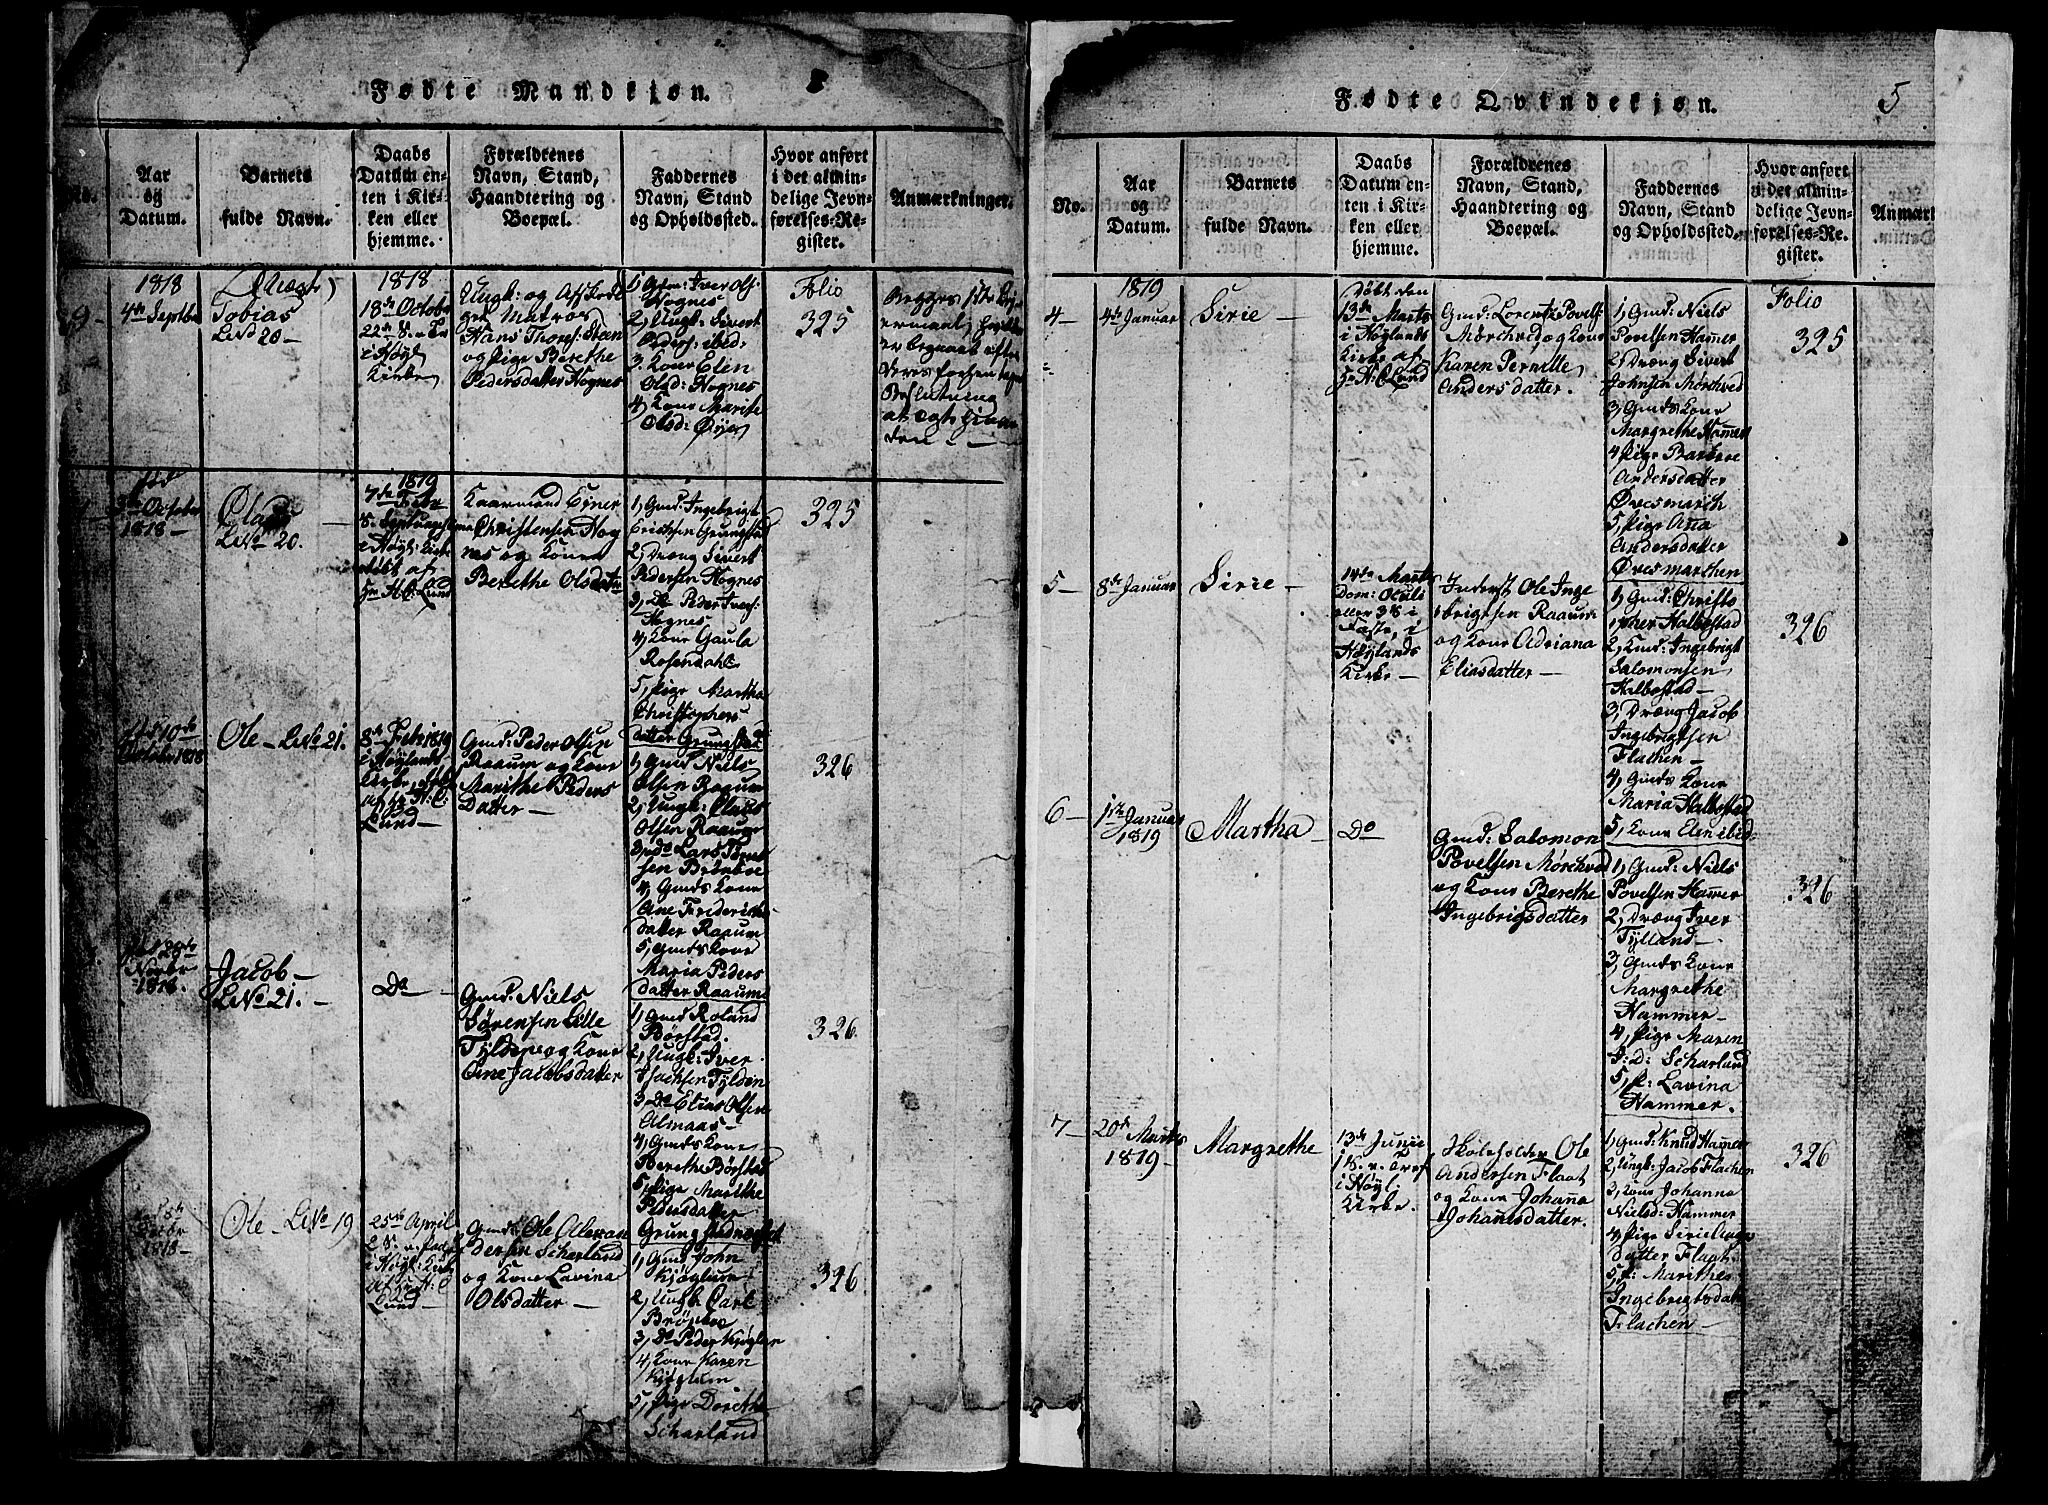 Fødte Mandkjøn.
No.
Aar
og
Datum.
Barnets
fulde Navn.
Daabs
Datum en-
ten i Kir-
ken eller
hjemme.
Forældrenes
Navn, Stand,
Haandtering og
Boepæl.
Faddernes
Navn, Stand
og Opholdssted.
Hvor anført
i det almin-
delige Jevn-
førelses-Re-
gister.
Anmærkninger.
9-
1818
4de Septbr
Tobias
L.No 20-
1818
18th Octobr
22de S. e. Tr
i Høyl.
Kirke
Ungk: og
get Matros
Hans Thores: Steen
og Pige Berethe
Pedersdatter Hognes
Iver Ols:
Hognes
2, Ungk: Sivert
Peders: ibid:
3. Kone Elen
Olsd: Hognes
4, Kone Marithe
Olsd: Øyen
Folio
325
3de October
1818-
Ola
L.No 20.
1819
7de Febr
S. Septuagesima
i Høyl: Kirke
døbt af
Hr H. C. Lund
Kaarmand Ejner
Christensen Hog
nes og Kone
Berethe Olsdatr
1, Gmd. Ingebrigt
Ericksen Grungstad
2, Dræng Sivert
Pedersen Hognes
3, Do Peder Ivers:
Hognes
4, Kone Gaula
Rosendahl
5, Pige Martha
Christophers
datter Grungstad
325
10de
October 1818
Ole - L.No 21.
8de Febr 1819
i Høylands
Kirke, døbt
af Hr H. C.
Lund-
Gmd: Peder Olsen
Raaum og Kone
Marithe Peders
Datter-
1, Gmd Niels
Olsen Raaum
2, Ungk: Claus
Olsen Raaum
3, do Lars Tøn
sen Brønboe
4, Gmds Kone
Ane Frederiche
datter Raaum
5, Gmds Kone
Maria Peders
datter Raaum
326
29de
Novbr
1818.
Jacob-
L.No 21.-
Do-
Gmd: Niels
Sørensen Lille
Tylden og Kone
Ane Jacobsdatter
1, Gmd Roland
Børstad
2, Ungk: Iver
Isachsen Tylden
3, Do Elias Olsen
Almaas-
4, Gmds Kone
Berethe Børstad
5, Pige Marthe
Pedersdatter
Grungstad
326.
1818-
Ole - L.No 19
25de April
2 S. e. Paas
i Høyl: Kirke
af Hr H. C.
Lund-
Gmd: Ole Alexan
dersen Scharland
og Kone Lavina
Olsdatter-
1, Gmd John
Kjøglum
2, Ungk Carl
3, Do Peder Kjøglum
4, Kone Karen
Kjøglum
5, Pige Dorethe
Scharland
326
Fødte Qvindekjøn.
5
No.
Aar
og
Datum.
Barnets
fulde Navn.
Daabs
Datum en-
ten i Kir-
ken eller
hjemme.
Forældrenes
Navn, Stand,
Haandtering og
Boepæl.
Faddernes
Navn, Stand
og Opholdssted.
Hvor anført
i det almin-
delige Jevn-
førelses-Re-
gister.
Anmært
4-
1819
4de Januar
Sirie-
Døbt den
13de Marts
i Høylands
Kirke af
Hr H. C. Lund
Gmd: Lorentz Povels
Mørchved og Kone
Karen Pernille
Andersdatter.
1, Gmd: Niels
Povelsen Hamer
2, Dræng Sivert
Johnsen Mørchved
3, Gmds Kone
Margrethe Hamer
4, Pige Barbroe
Andersdatter
Øvesmarch
5, Pige Ana
Andersdatter
Øvesmarchen
Folio
325
5-
8de Januar
Sirie-
14de Marts
Dom: Oculi
eller 3 S i
Faste, i
Høylands
Kirke-
Inderst Ole Inge
brigtsen Raaum
og Kone Adriana
Eliasdatter-
1, Gmd: Christo
pher Halbostad
2, Gmd: Ingebrigt
Salomonsen
Halbostad-
3, Dræng Jacob
Ingebrigtsen
Flachen-
4, Gmds Kone
Maria Halbostad
5, Kone Elen ibid-
326
6-
Januar
1819
Martha-
Do
Gmd: Salomon
Povelsen Mørchved
og Kone Berethe
Ingebrigsdatter
1, Gmd: Niels
Povelsen Hamer
2, Dræng Iver
Tylland-
3, Gmds Kone
Margrethe
Hammer-
4, Pige Maren
I: d: Scharland
5, P: Lavina
Hammer.
326
7-
20de Marts
1819-
Margrethe
13de Junii
1 S. e. Tref
i Høyl:
Kirke.
Skoleholder Ole
Andersen Flaat
og Kone Johanna
Johanesdatter.
1, Gmd: Knud Hamer
2, Ungk: Jacob Flachen
3, Kone Johanna
Nielsd: Hammer
4, Pige Sirie
datter Flaat
5, P: Marithe
Ingebrigtsdatr
Flachen-
326